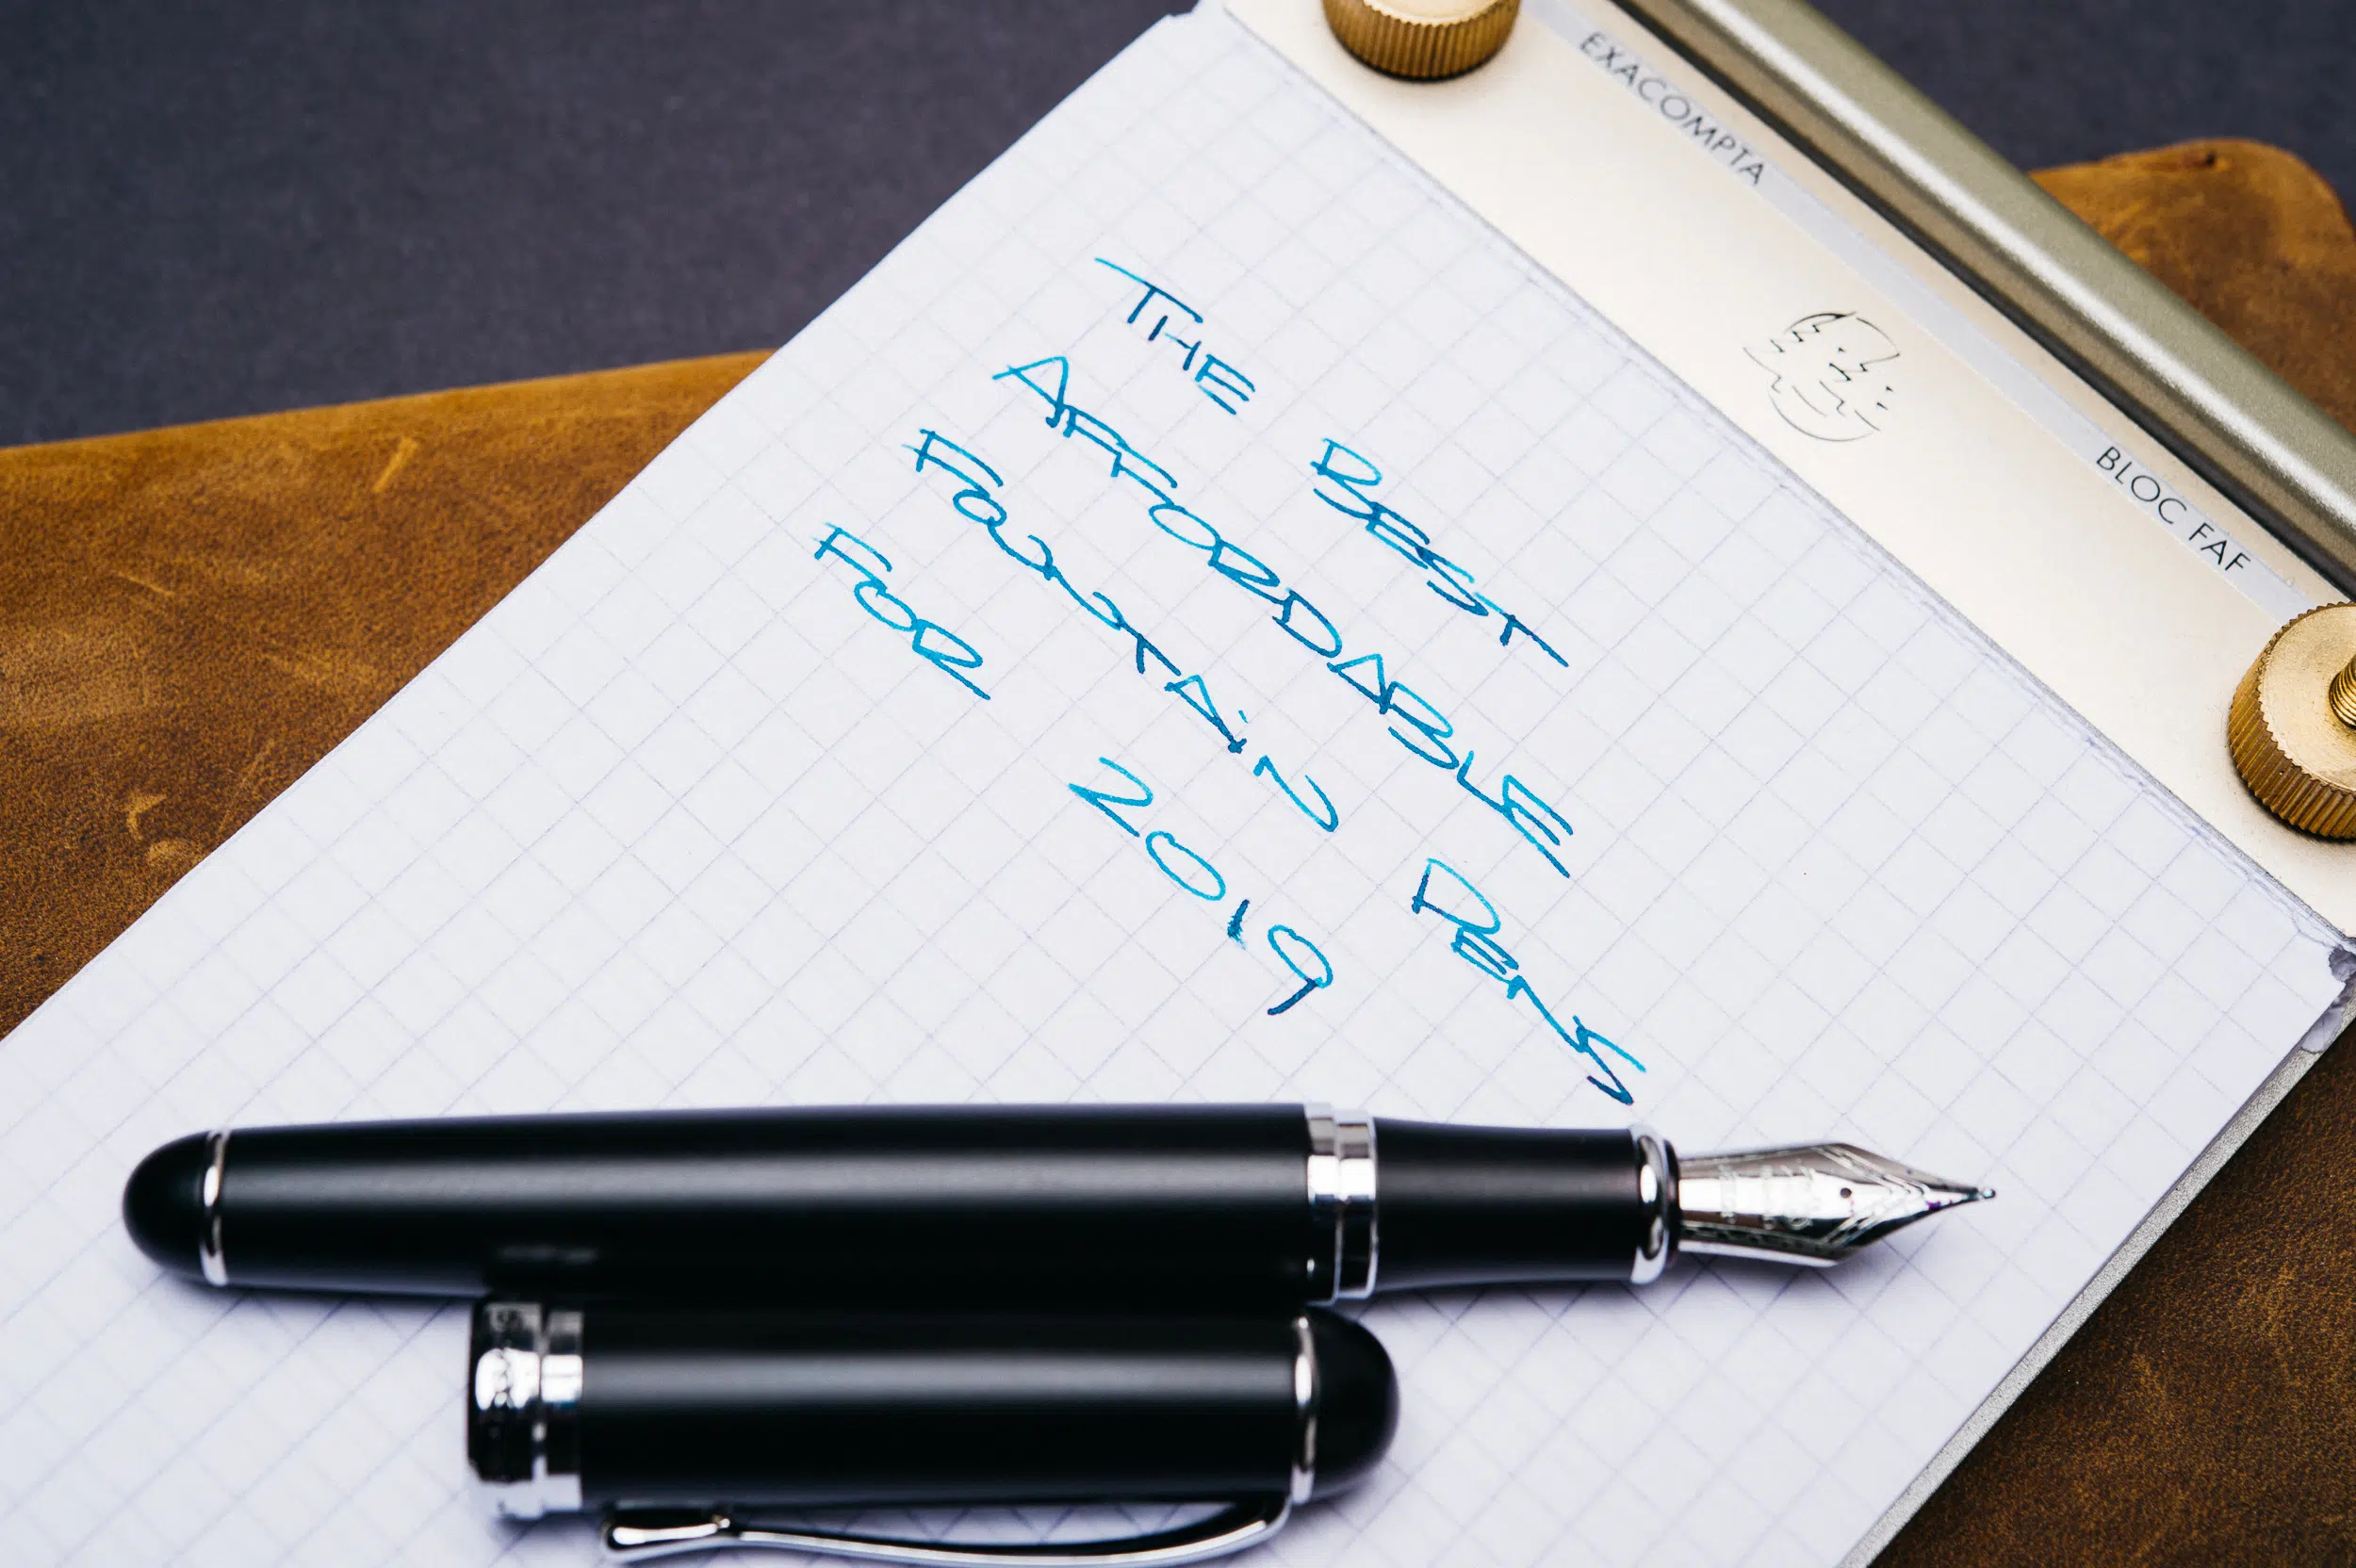 EXACOMPTA
BLOC FAF
THE BEST
AFFORDABLE
FOUNTAIN PENS
FOR 2019